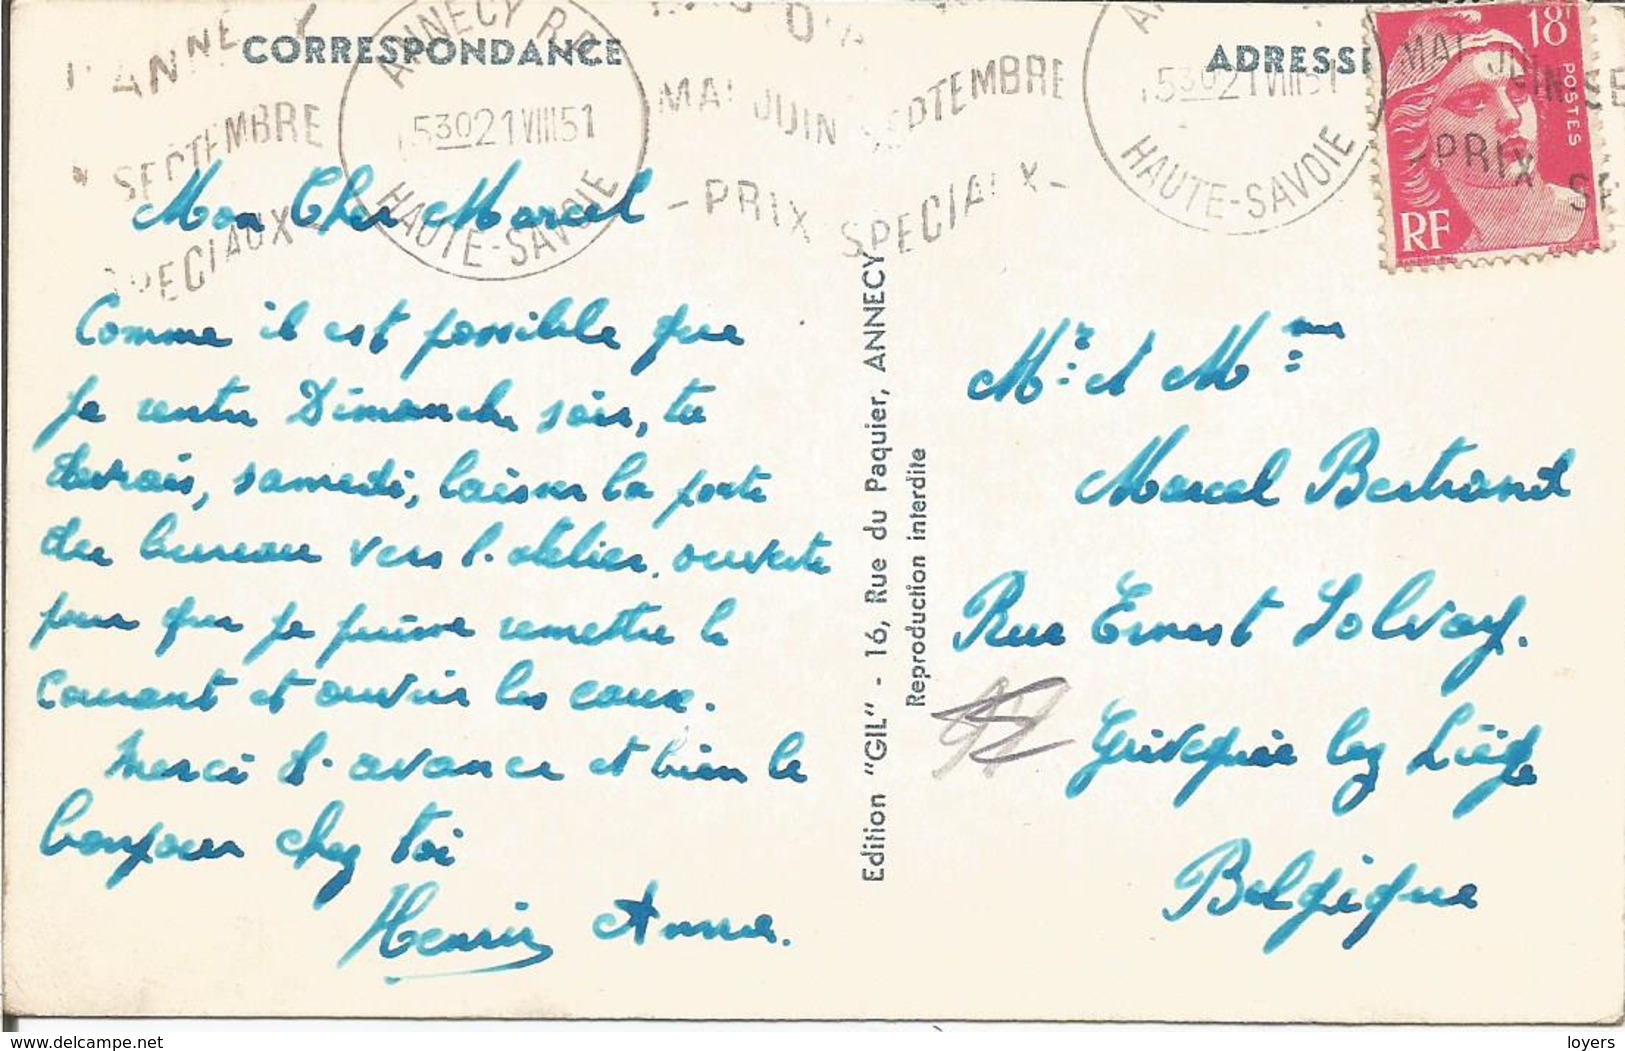 D'ANNECY
CORRESPONDANCE
ANNECY R.P.
ADRESSE
18F
POSTES
RF
SEPTEMBRE
SPECIAUX
1530 21 VIII 51
HAUTE-SAVOIE
MAI JUIN SEPTEMBRE
- PRIX SPECIAUX -
1530 21 VIII 51
HAUTE-SAVOIE
MAI JUIN SE
- PRIX SP
Mon Cher Marcel
Comme il est possible que
je rentre Dimanche soir, tu
devrais, samedi, laisser la porte
du bureau vers l'atelier ouverte
pour que je puisse remettre le
courant et ouvrir les eaux.
Merci d'avance et bien le
bonjour chez toi
Henri Anna.
Edition "GIL" - 16, Rue du Paquier, ANNECY
Reproduction interdite
Mr et Mme
Marcel Bertrand
Rue Ernest Solvay.
Grivegnée lez Liége
Belgique
delcampe.net
loyers